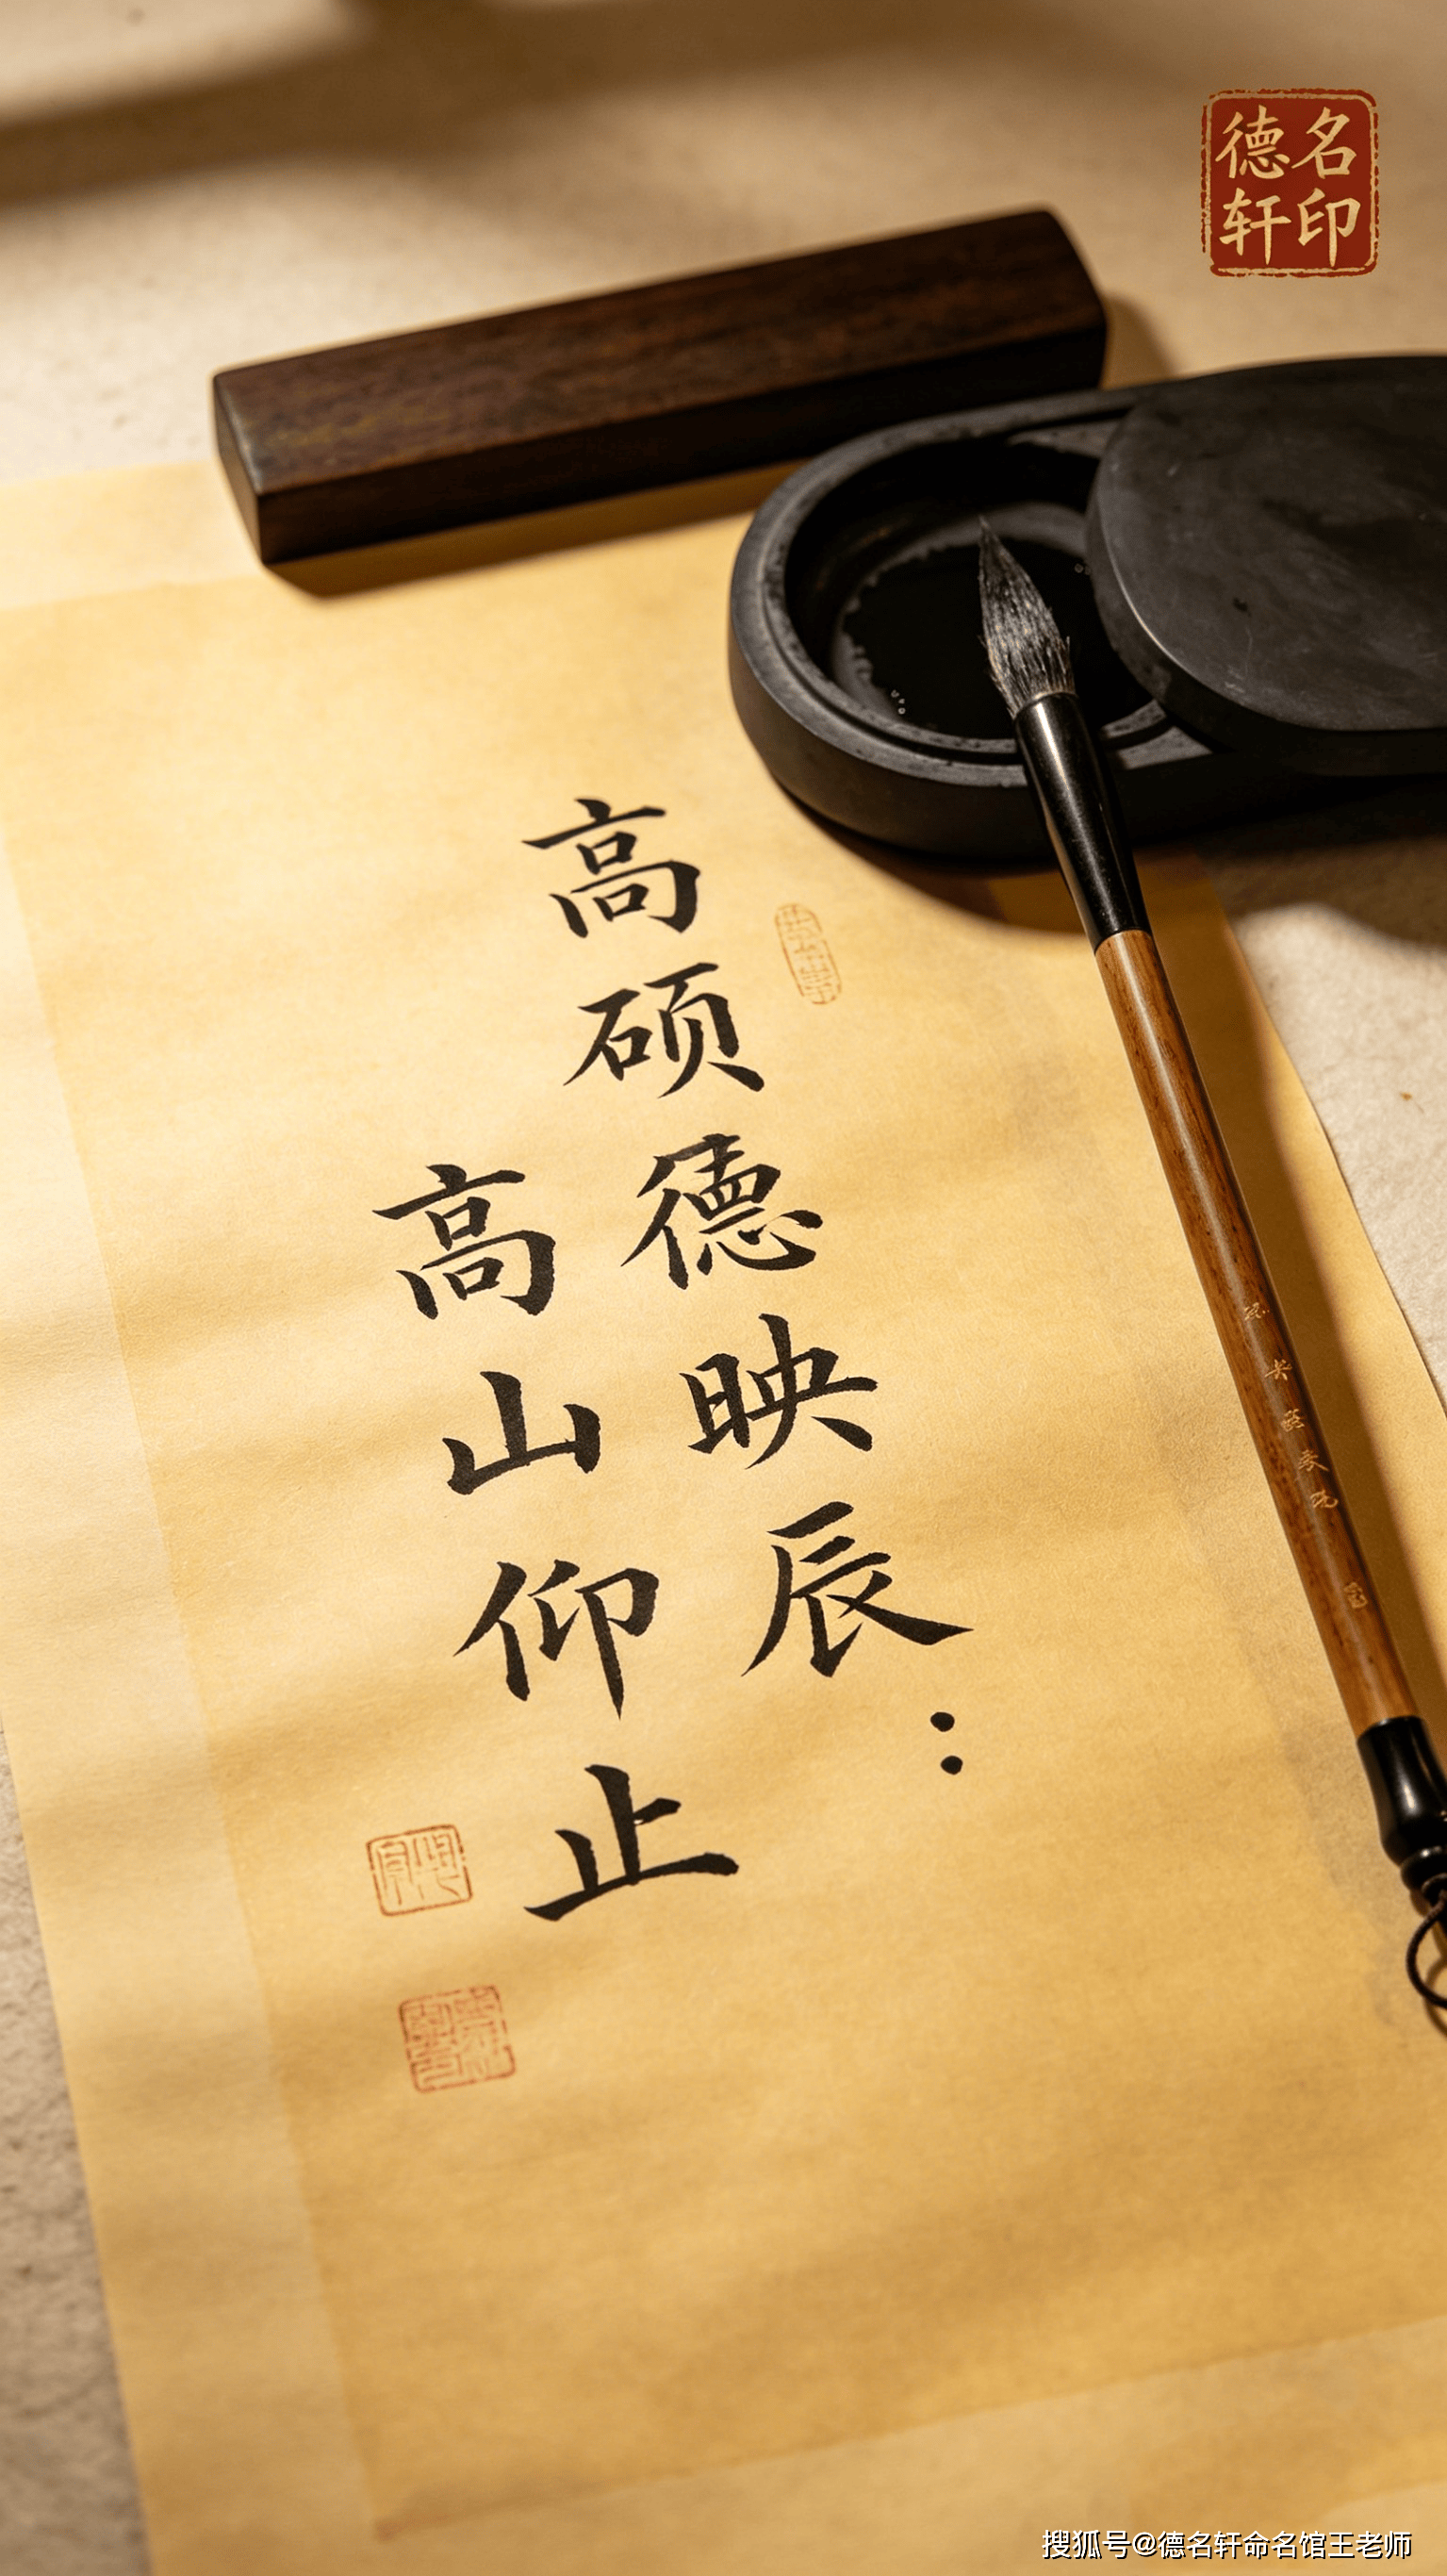 德名
轩印
高硕德映辰：
高山仰止
搜狐号@德名轩命名馆王老师